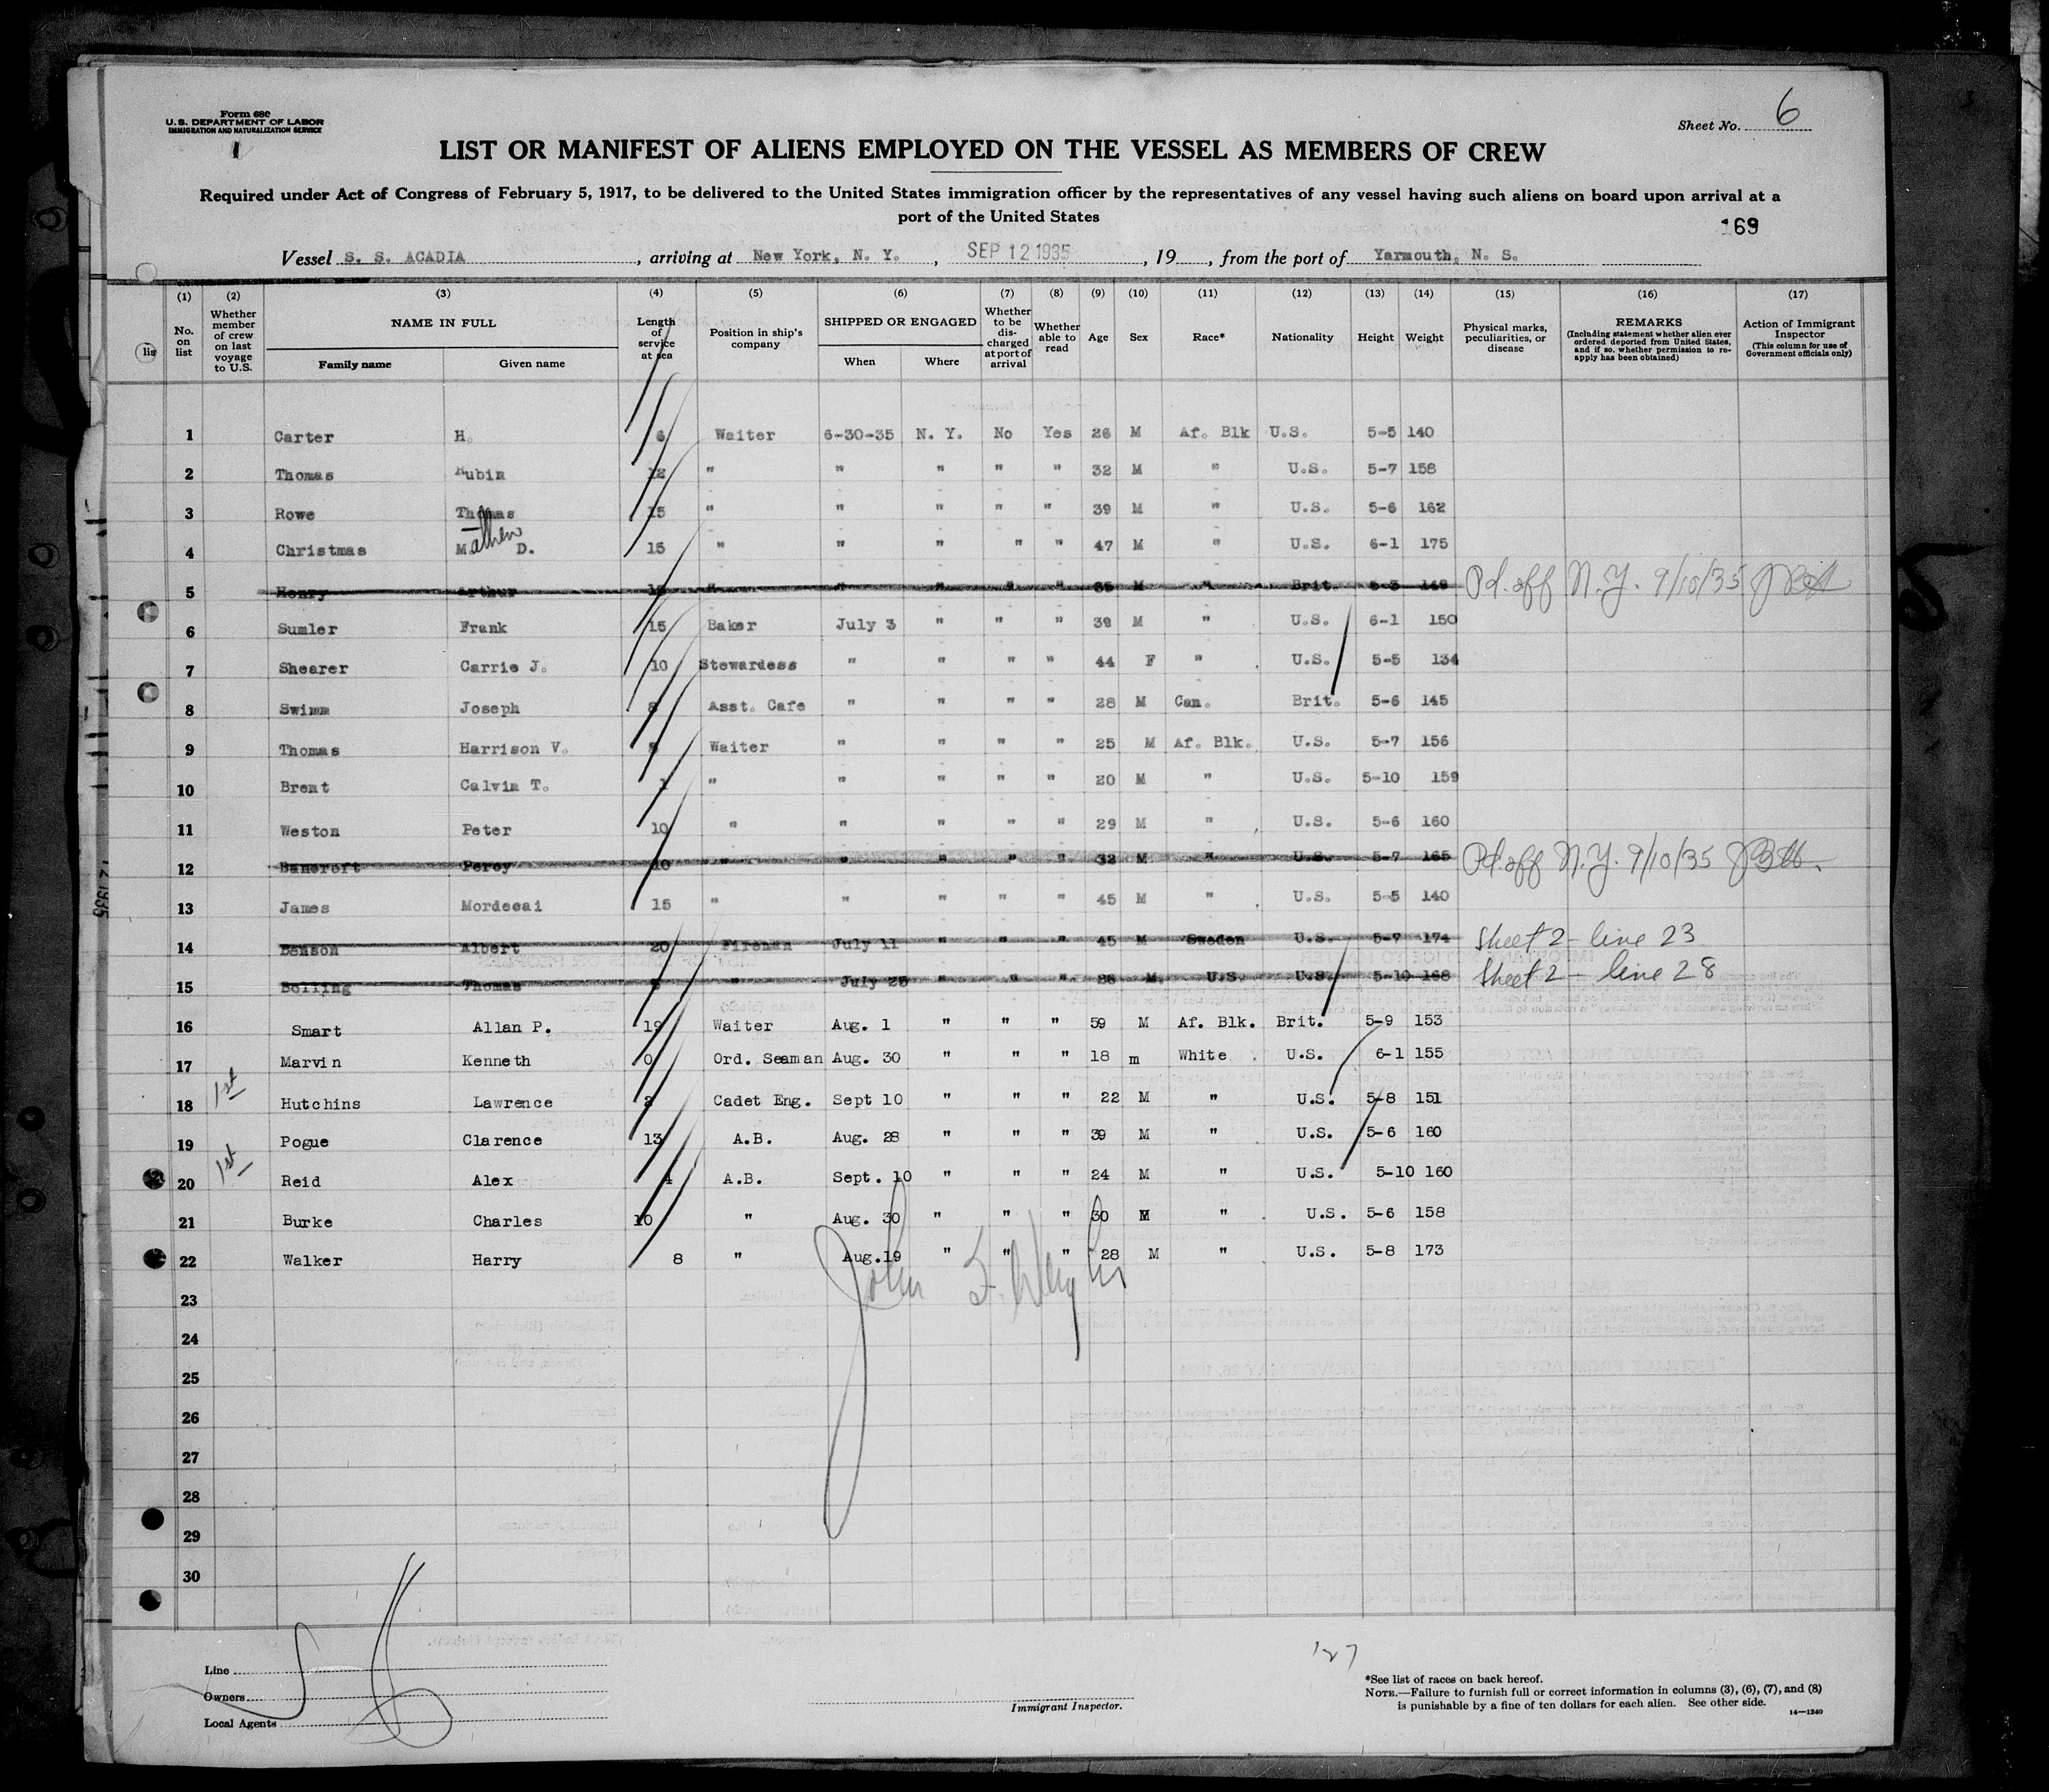 Form 680
U.S. DEPARTMENT OF LABOR
IMMIGRATION AND NATURALIZATION SERVICE
Sheet No. 6
LIST OR MANIFEST OF ALIENS EMPLOYED ON THE VESSEL AS MEMBERS OF CREW
Required under Act of Congress of February 5, 1917, to be delivered to the United States immigration officer by the representatives of any vessel having such aliens on board upon arrival at a
port of the United States
169
Vessel S. S. ACADIA, arriving at New York, N. Y., SEP 12 1935, 19, from the port of Yarmouth, N. S.
(1) (2) (3) (4) (5) (6) (7) (8) (9) (10) (11) (12) (13) (14) (15) (16) (17)
No. on list
Whether member of crew on last voyage to U.S.
NAME IN FULL
Family name Given name
Length of service at sea
Position in ship's company
SHIPPED OR ENGAGED
When Where
Whether to be discharged at port of arrival
Whether able to read
Age
Sex
Race*
Nationality
Height
Weight
Physical marks, peculiarities, or disease
REMARKS
(Including statement whether alien ever ordered deported from United States, and if so, whether permission to reapply has been obtained)
Action of Immigrant Inspector
(This column for use of Government officials only)
lis
1 Carter H. 6 Waiter 6-30-35 N. Y. No Yes 26 M Af. Blk U.S. 5-5 140
2 Thomas Rubin 12 " " " " " 32 M " U.S. 5-7 158
3 Rowe Thomas 15 " " " " " 39 M " U.S. 5-6 162
4 Christmas Mathew D. 15 " " " " " 47 M " U.S. 6-1 175
5 Henry Arthur " " " " " 35 M " Brit. Pd. off N.Y. 9/10/35
6 Sumler Frank 15 Baker July 3 " " " 39 M " U.S. 6-1 150
7 Shearer Carrie J. 10 Stewardess " " " " 44 F " U.S. 5-5 134
8 Swimm Joseph 8 Asst. Cafe " " " " 28 M Can. Brit. 5-6 145
9 Thomas Harrison V. Waiter " " " " 25 M Af. Blk. U.S. 5-7 156
10 Brent Calvin T. 1 " " " " " 20 M " U.S. 5-10 159
11 Weston Peter 10 " " " " " 29 M " U.S. 5-6 160
12 Bancroft Percy 10 " " " " " 32 M " U.S. 5-7 165 Pd. off N.Y. 9/10/35
13 James Mordecai 15 " " " " " 45 M " U.S. 5-5 140
14 Benson Albert 20 Fireman July 11 " " " 45 M Sweden U.S. 5-7 174 Sheet 2 - line 23
15 Bolling Thomas " July 25 " " " 26 M U.S. U.S. 5-10 168 Sheet 2 - line 28
16 Smart Allan P. 19 Waiter Aug. 1 " " " 59 M Af. Blk. Brit. 5-9 153
17 Marvin Kenneth 0 Ord. Seaman Aug. 30 " " " 18 m White U.S. 6-1 155
18 1st Hutchins Lawrence 2 Cadet Eng. Sept 10 " " " 22 M " U.S. 5-8 151
19 Pogue Clarence 13 A.B. Aug. 28 " " " 39 M " U.S. 5-6 160
20 1st Reid Alex 4 A.B. Sept. 10 " " " 24 M " U.S. 5-10 160
21 Burke Charles 10 " Aug. 30 " " " 30 M " U.S. 5-6 158
22 Walker Harry 8 " Aug.19 " " " 28 M " U.S. 5-8 173
John F.
23
24
25
26
27
28
29
30
127
Line
Owners
Local Agents
Immigrant Inspector.
*See list of races on back hereof.
NOTE.—Failure to furnish full or correct information in columns (3), (6), (7), and (8)
is punishable by a fine of ten dollars for each alien. See other side.
14—1240